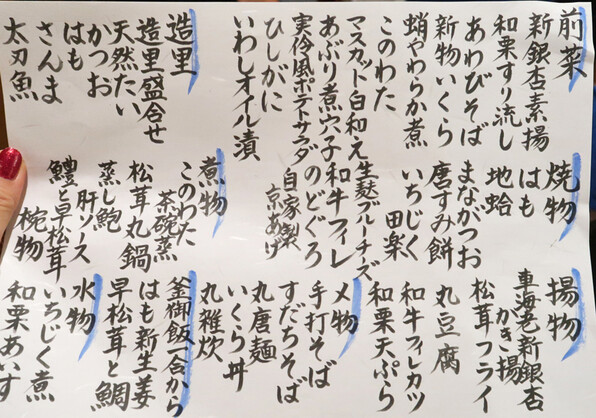 前菜
新銀杏素揚
和栗すり流し
あわびそば
新物いくら
蛸やわらか煮
このわた
マスカット白和え
あぶり煮穴子
実伶風ポテトサラダ
ひしがに
いわしオイル漬
造里
造里盛合せ
天然たい
かつお
はも
さんま
太刀魚
焼物
はも
地蛤
まながつお
唐すみ餅
いちじく
田楽
生麩ブルーチーズ
和牛フィレ
のどぐろ
自家製
京あげ
煮物
このわた
茶碗蒸
松茸丸鍋
蒸し鮑
肝ソース
鱧と早松茸
椀物
揚物
車海老新銀杏
かき揚
松茸フライ
丸豆腐
和牛フィレカツ
和栗天ぷら
〆物
手打そば
すだちそば
丸唐麺
いくら丼
丸雑炊
釜御飯一合から
はも新生姜
早松茸と鯛
水物
いちじく煮
和栗あいす